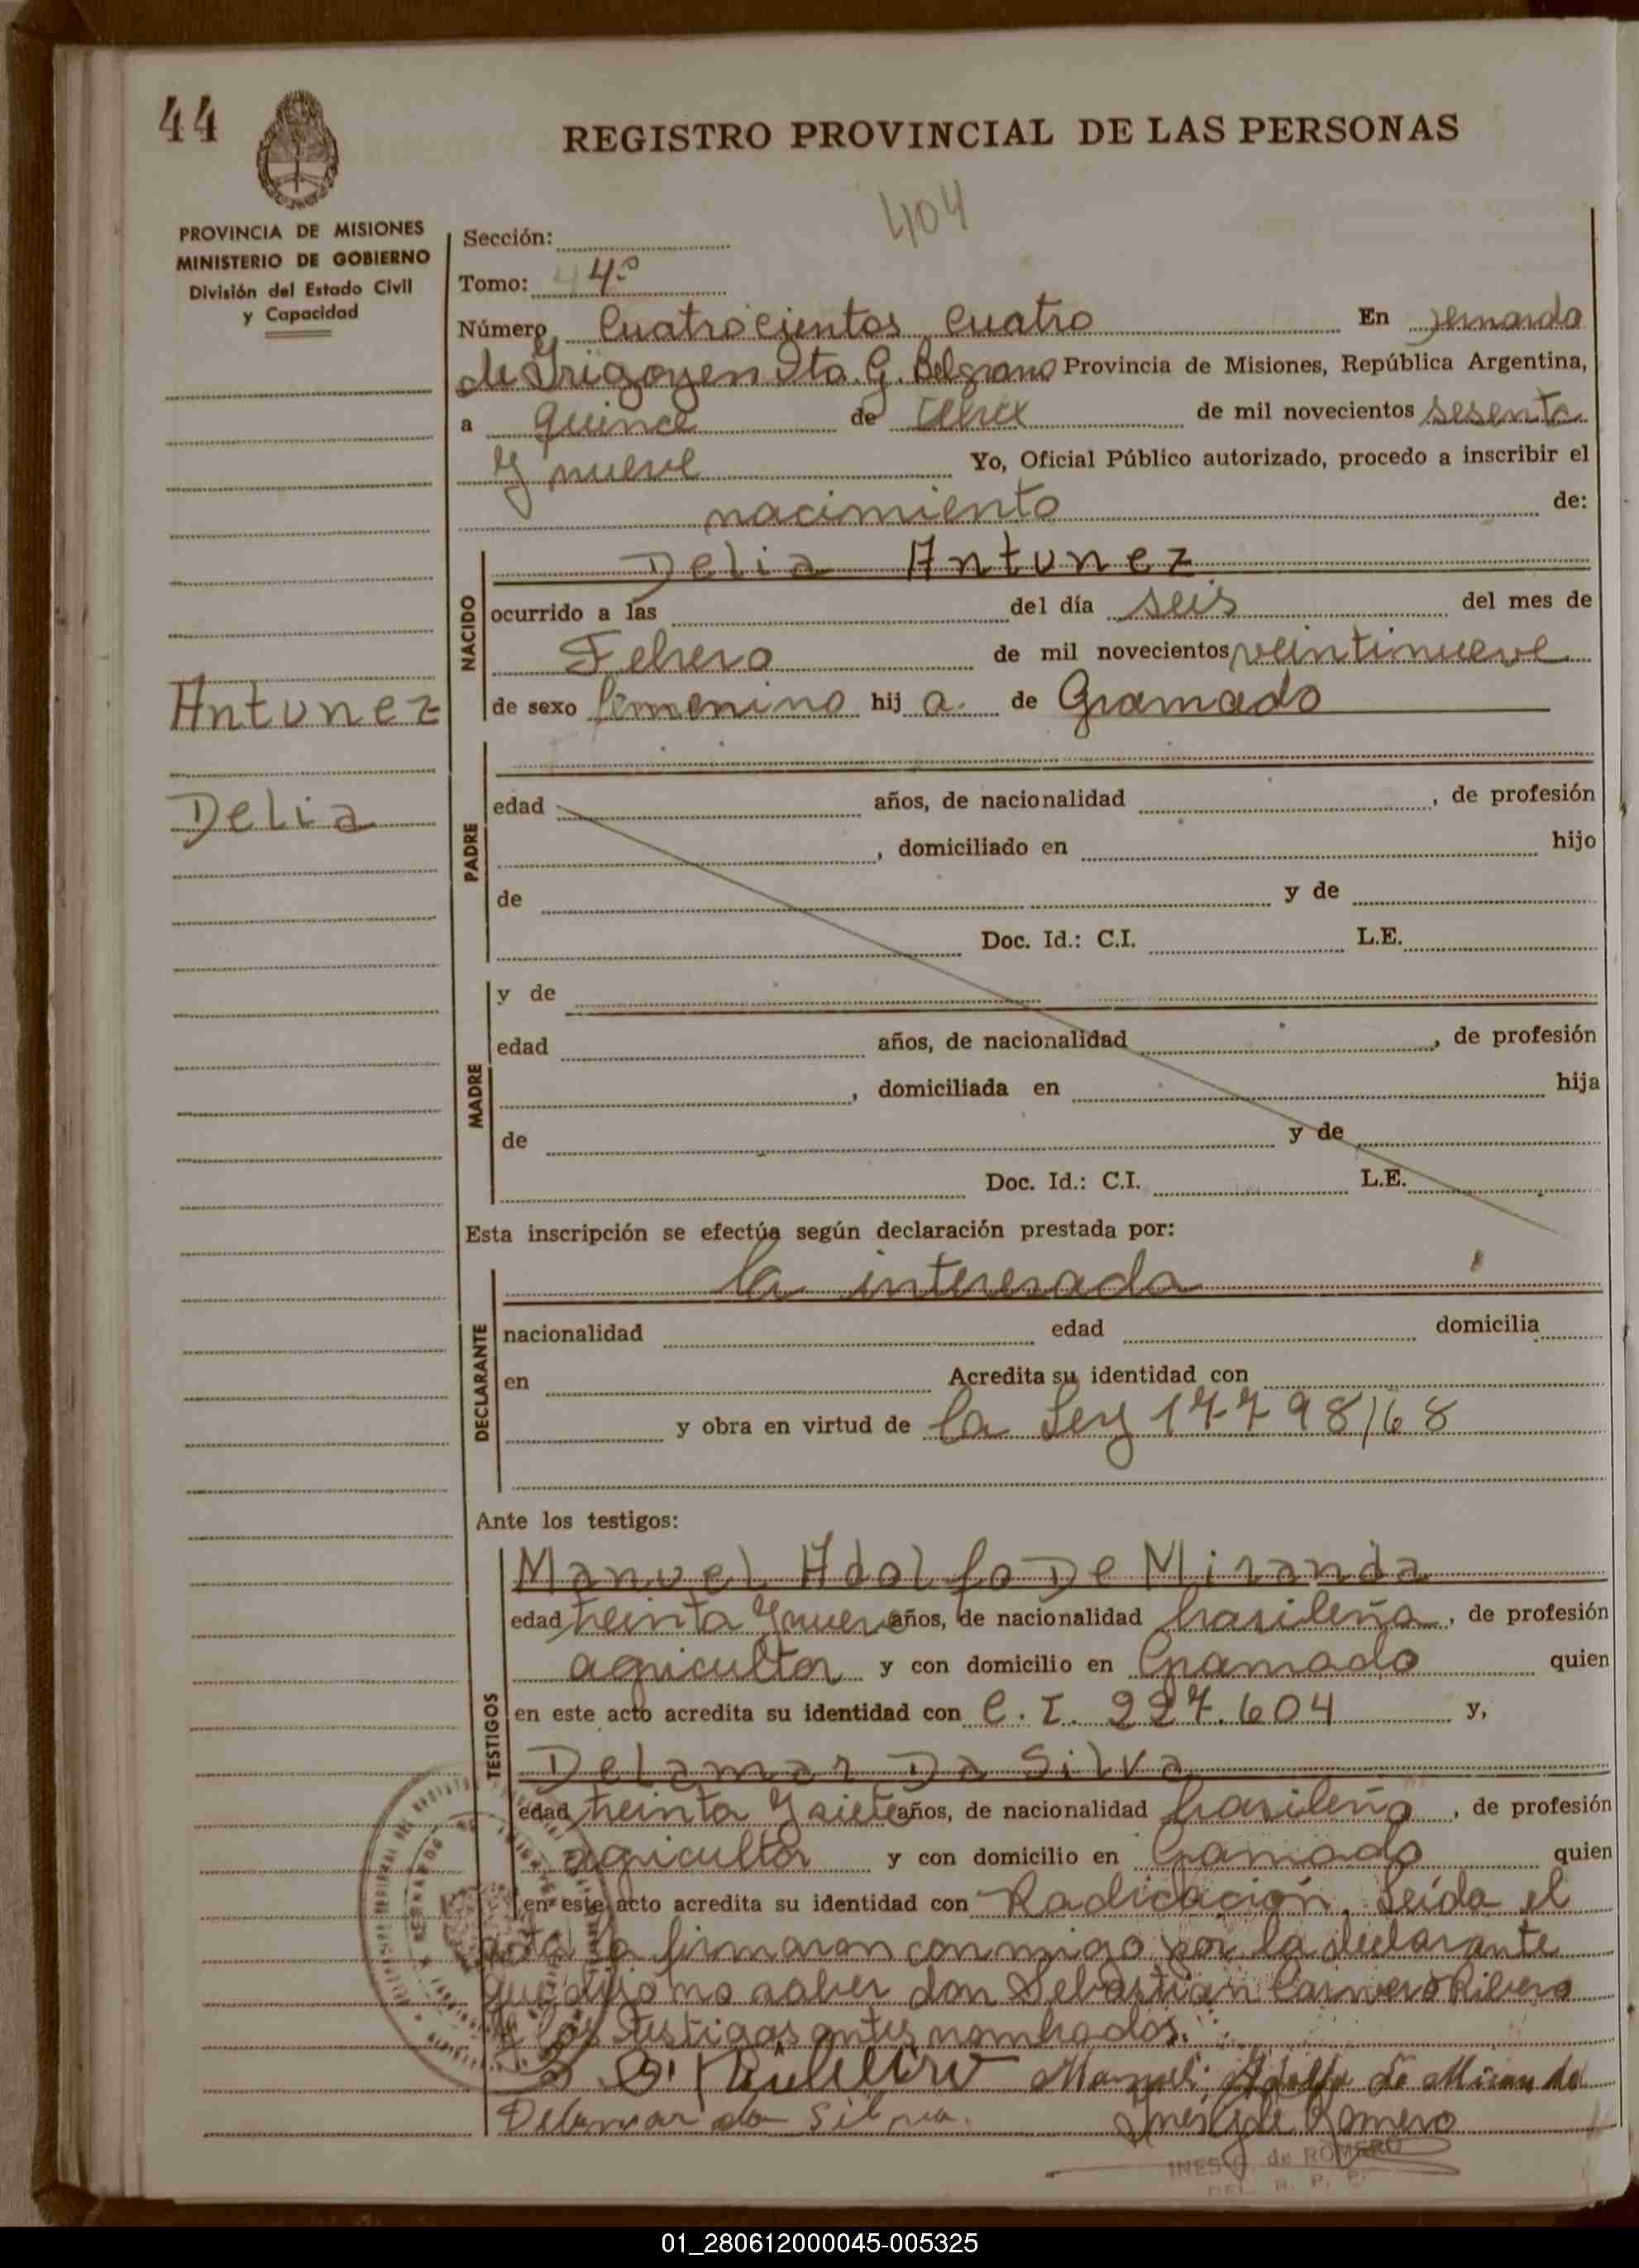 44
REGISTRO PROVINCIAL DE LAS PERSONAS
404
PROVINCIA DE MISIONES
MINISTERIO DE GOBIERNO
División del Estado Civil
y Capacidad
Sección:
Tomo: 4º
Número Cuatrocientos cuatro En Bernardo
de Irigoyen Dto. G. Belgrano Provincia de Misiones, República Argentina,
a quince de de mil novecientos sesenta
y nueve Yo, Oficial Público autorizado, procedo a inscribir el
nacimiento de:
NACIDO
Delia Antunez
ocurrido a las del día seis del mes de
Febrero de mil novecientos veintinueve
de sexo femenino hij a. de Gramado
Antunez
Delia
PADRE
edad años, de nacionalidad , de profesión
, domiciliado en hijo
de y de
Doc. Id.: C.I. L.E.
MADRE
y de
edad años, de nacionalidad , de profesión
, domiciliada en hija
de y de
Doc. Id.: C.I. L.E.
Esta inscripción se efectúa según declaración prestada por:
DECLARANTE
la interesada
nacionalidad edad domicilia
en Acredita su identidad con
y obra en virtud de la Ley 17798/68
Ante los testigos:
TESTIGOS
Manuel Adolfo De Miranda
edad treinta y nueve años, de nacionalidad brasileña, de profesión
agricultor y con domicilio en Gramado quien
en este acto acredita su identidad con C. I. 227.604 y,
Delamar Da Silva
edad treinta y siete años, de nacionalidad brasileña, de profesión
agricultor y con domicilio en Gramado quien
en este acto acredita su identidad con Radicación. Leída el
acta la firmaron conmigo por la declarante
que dijo no saber don Sebastian Carnero Ribero
y los testigos antes nombrados.
Manuel Adolfo de Miranda
Delamar da Silva. Ines G de Romero
INES G. de ROMERO
01_280612000045-005325